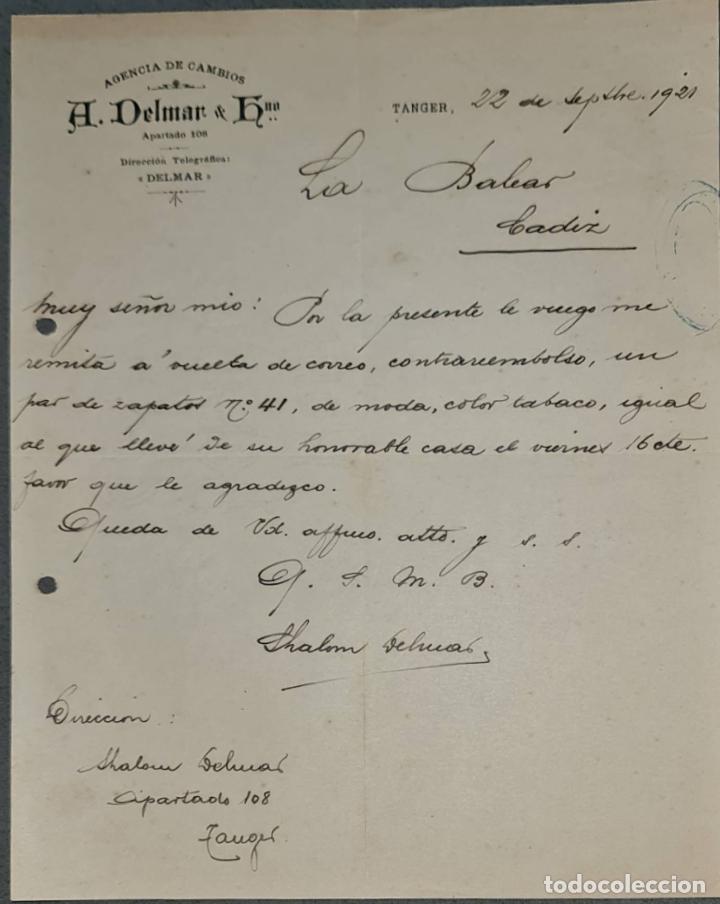 AGENCIA DE CAMBIOS
A. Delmar & Hno
Apartado 108
Dirección Telegráfica:
«DELMAR»
TANGER, 22 de Septbre. 1921
La Balear
Cadiz
Muy señor mio: Por la presente le ruego me
remita a' vuelta de correo, contrareembolso, un
par de zapatos Nº 41, de moda, color tabaco, igual
al que llevé de su honorable casa el viernes 16 cte.
favor que le agradezco.
Queda de Vd. affmo. atto. y s. s.
Q. S. M. B.
Shalom Delmar
Dirección:
Shalom Delmar
Apartado 108
Tanger
todocoleccion